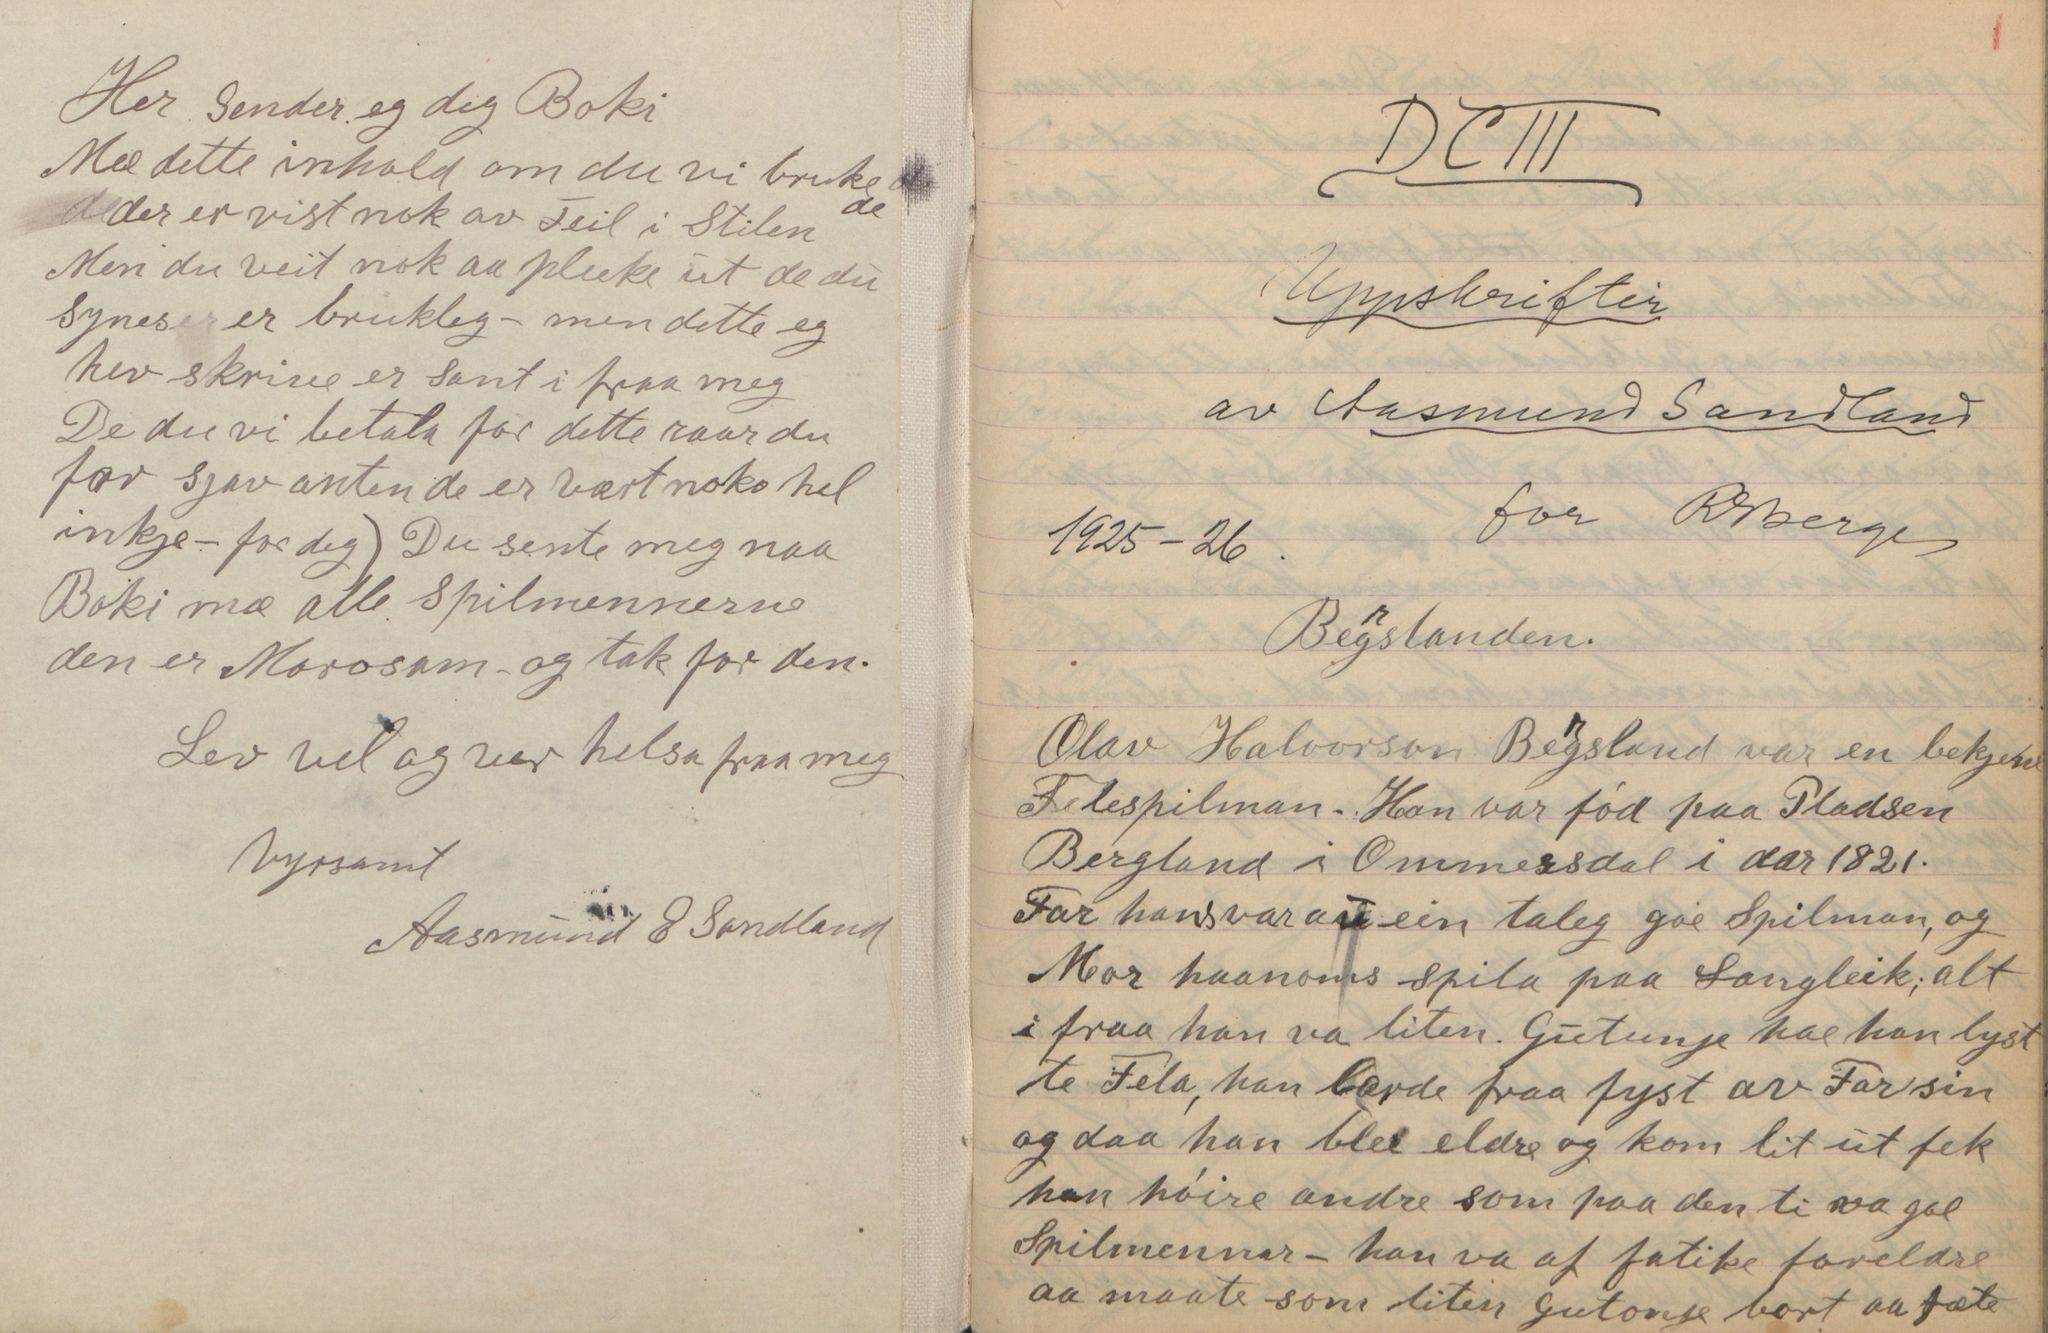 Her sender eg deg Boki
Mæ dette inhold om du vi bruke
de
deder er vist nok av Feil i Stilen
Men du veit nok aa pluke ut de du
synes er brukleg – men dette eg
hev skrive er sant i fraa meg
De du vi betala for dette raar du
før sjav anten de er vært noko hel
inkje – for deg) Du sente meg naa
Boki mæ alle Spilmennerne
den er Morosam – og tak for den.
Lev vel og vær helsa fraa meg
Vyrsamt
Aasmund E Sandland
1
DCIII
Uppskrifter
av Aasmund Sandland
for RBerge
1925–26.
Bergslanden.
Olav Halvorson Bergsland var en bekjent
Felespilman – Han var fód paa Pladsen
Bergland i Ommesdal i aar 1821.
Far hans var au ein taleg goe Spilman, og
Mor haanoms spila paa Langleik; alt
i fraa han va liten. Gutunge hae han lyst
te Fela, han lærde fraa fyst av Far sin
og daa han blei eldre og kom lit ut fek
han hóire andre som paa den ti va goe
Spilmennar – han va af fatike foreldre
aa maate som liten Gutonge bort aa jæte